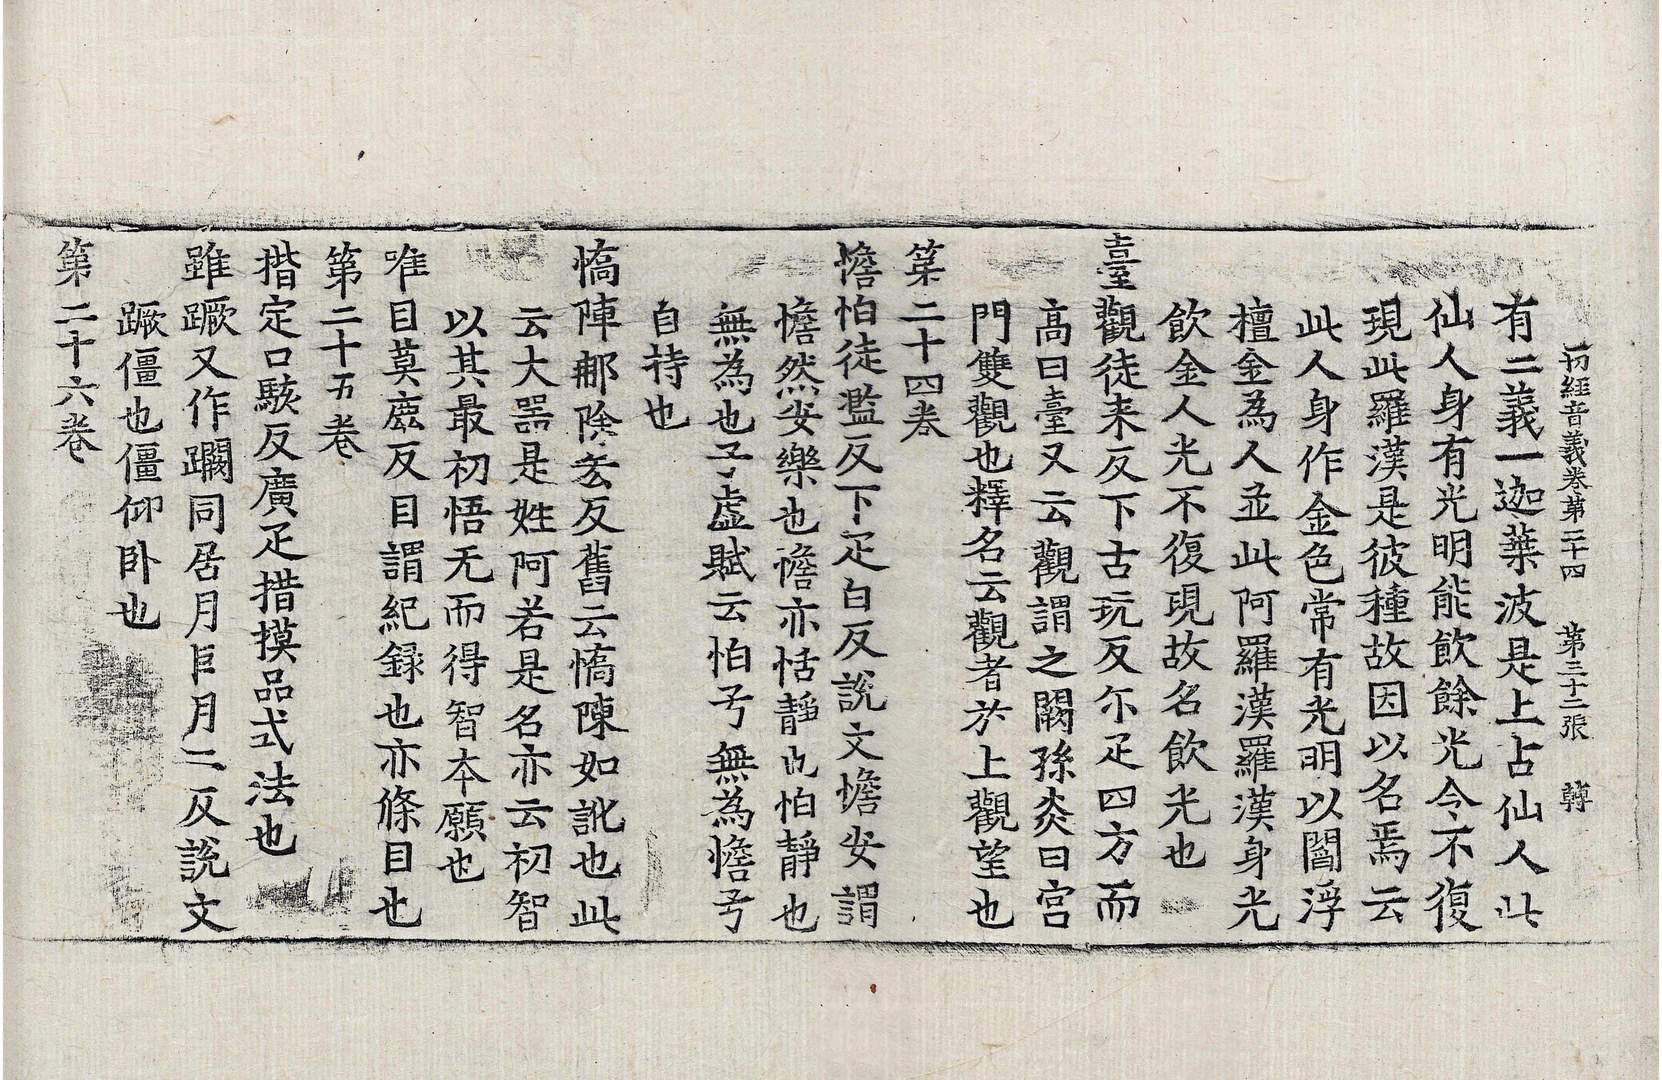 一切經音義卷第二十四 第三十二張 轉
有二義一迦葉波是上占仙人此
仙人身有光明能飲餘光令不復
現此羅漢是彼種故因以名焉云
此人身作金色常有光明以閻浮
檀金爲人並此阿羅漢羅漢身光
飲金人光不復現故名飲光也
臺觀徒来反下古玩反尒疋四方而
高曰臺又云觀謂之闕孫炎曰宮
門雙觀也釋名云觀者於上觀望也
第二十四卷
憺怕徒濫反下疋白反說文憺安謂
憺然安樂也憺亦恬靜也怕靜也
無為也子虛賦云怕兮無為憺兮
自持也
憍陣那除岺反舊云憍陳如訛也此
云大噐是姓阿若是名亦云初智
以其最初悟无而得智本願也
唯目莫鹿反目謂紀録也亦條目也
第二十五卷
揩定口駭反廣疋揩摸品式法也
雖蹶又作蹷同居月巨月二反說文
蹶僵也僵仰卧也
第二十六卷